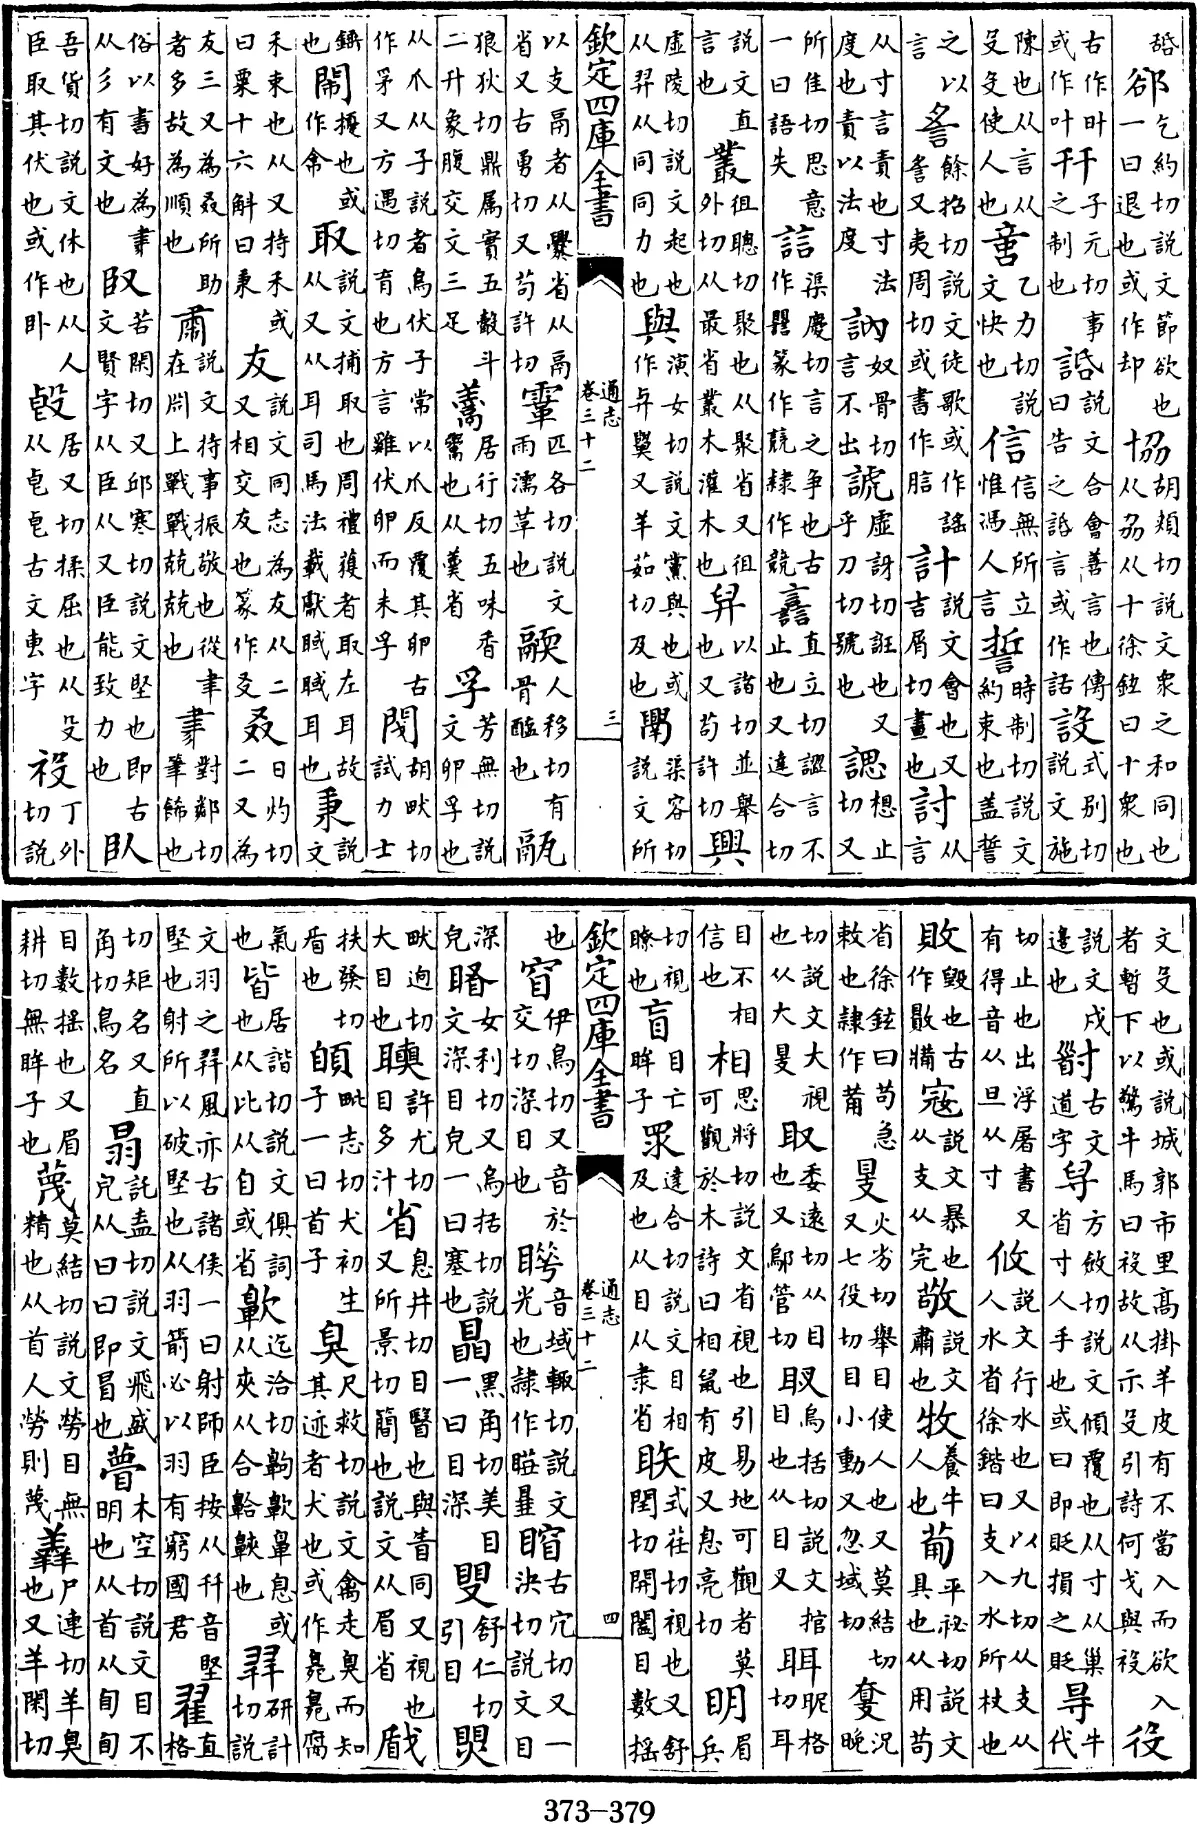 郤乞約切說文節欲也一曰退也或作却協胡頰切說文衆之和同也从劦从十徐鉉曰十衆也
右作旪或作叶千子元切事之制也說文合會善言也傳曰告之言或作話設式别切說文施
陳也从言从殳殳使人也乙力切說文快也信信無所立惟馮人言誓時制切說文約束也盖誓
之以言餘招切說文徒歌或作謠又夷周切或書作計說文會也又吉屑切畫也討从言
从寸言責也寸法度也責以法度訥奴骨切言不出諕虛訝切誑也又乎刀切號也諰想止切又
所佳切思意一曰語失誩渠慶切言之争也古作篆作競隷作競譶直立切讄言不止也又達合切
說文直言也叢徂聰切聚也从聚省又徂外切从最省叢木灌木也舁以諸切並舉也又苟許切興
虛陵切說文起也从舁从同同力也與演女切說文黨與也或作又羊茹切及也渠容切說文所
欽定四庫全書　通志卷三十二　三
以支鬲者从爨省从鬲省又古勇切又苟許切匹各切說文雨濡革也人移切有骨醢也
狼狄切鼎属實五觳斗二升象腹交文三足居行切五味香鬻也从羹省孚芳無切說文卵孚也
从爪从子說者鳥伏子常以爪反覆其卵古作又方遇切育也方言雞伏卵而未孚胡畎切試力士
也鬧擾也或作取說文捕取也周禮獲者取左耳故从又从耳司馬法載獻聝聝耳也秉說文
禾束也从又持禾或曰粟十六斛曰秉友說文同志為友从二又相交友也篆作㕛叒日灼切二又為
友三又為叒所助者多故為順也肅說文持事振敬也從聿在上戰戰兢兢也𦘔對鄰切筆飾也
俗以書好為聿从彡有文也臤苦閑切又邱寒切說文堅也即古文賢字从臣从又臣能致力也臥
吾貨切說文休也从人臣取其伏也或作卧居又切揉屈也从殳从皀皀古文叀字祋丁外切說
文殳也或說城郭市里高掛羊皮有不當入而欲入者暫下以驚牛馬曰祋故从示殳引詩何戈與祋役
說文戍邊也古文道字方斂切說文傾覆也从寸从巢省寸人手也或曰即貶損之貶㝵牛代
切止也出浮屠書又有得音从旦从寸攸說文行水也又以九切从支从人水省徐鍇曰支入水所杖也
敗毀也古作寇說文暴也从支从完敬說文肅也牧養牛人也葡平祕切說文具也从用苟
省徐鉉曰苟急敕也隷作葡火劣切舉目使人也又莫結切又七役切目小動又忽域切敻况晚
切說文大視也从大委遠切从目取也又鄔管切烏括切說文捾目也从目又昵格切耳
目不相信也相思將切說文省視也引易地可觀者莫可觀於木詩曰相鼠有皮又息亮切明眉兵
切視瞭也盲目亡眸子眔達合切說文目相及也从目从隶省式荏切視也又舒閏切開闔目數揺
欽定四庫全書　通志卷三十二　四
也窅伊鳥切又音於交切深目也音域輙切說文光也隷作古穴切又一決切說文目
深皃女利切又烏括切說文深目皃一曰塞也瞐黑角切美目一曰目深舒仁切引目
畎迥切大目也許尤切目多汁省息井切目醫也與眚同又視也又所景切簡也說文从眉省瞂
扶發切盾也毗志切犬初生子一曰首子臭尺救切說文禽走臭而知其迹者犬也或作腐
氣也皆居諧切說文俱詞也从比从自或省迄洽切鼻息或从夾从合也羿研計切說
文羽之羿風亦古諸侯一曰射師臣按从幵音堅堅也射所以破堅也从羽箭必以羽有窮國君翟直格
切矩名又直角切鳥名託盍切說文飛盛皃从曰曰即冒也瞢木空切說文目不明也从首从旬旬
目數揺也又眉耕切無眸子也蔑莫結切說文勞目無精也从首人勞則蔑羴尸連切羊臭也又羊閑切
373–379